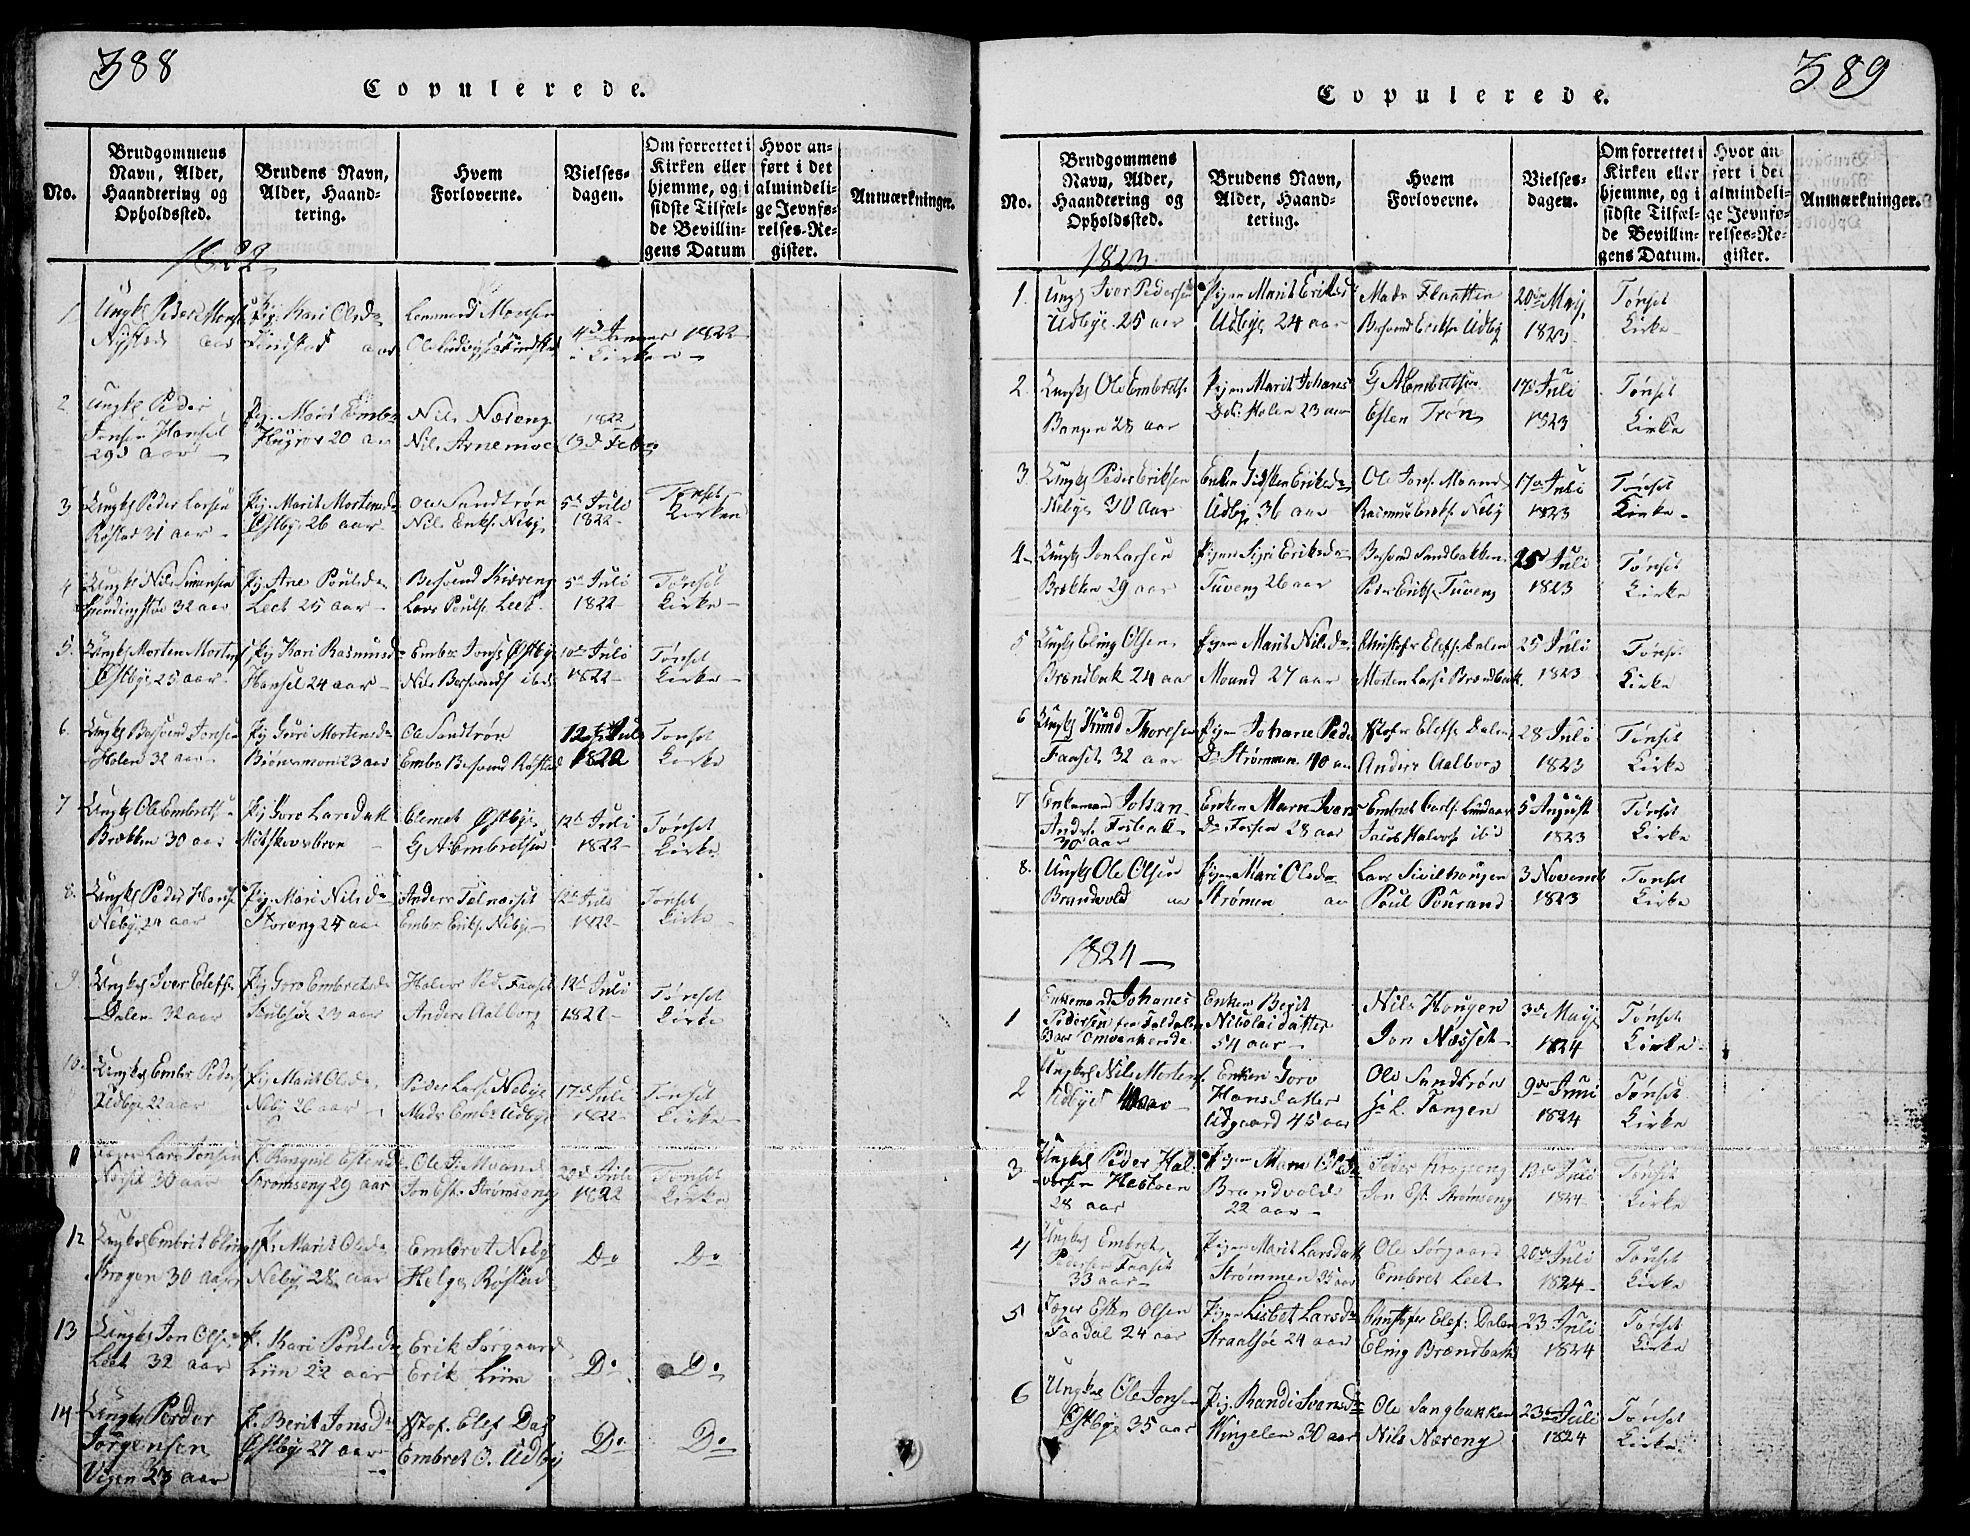 388
Copulerede.
No.
Brudgommens
Navn, Alder,
Haandtering og
Opholdssted.
Brudens Navn,
Alder, Haand-
tering.
Hvem
Forloverne.
Vielses-
dagen.
Om forrettet i
Kirken eller
hjemme, og i
sidste Tilfæl-
de Bevillin-
gens Datum
Hvor an-
ført i det
almindeli-
ge Jevnfø-
relses-Re-
gister.
Anmærkninger.
1822
1
Ungk Peder Mons
Nystad aar
Pig Kari Olsd
Findstad aar
Lemmend Monsen
4d Januar 1822
i Kirken
2
Ungk Peder
Jonsen Hansel
29 aar
Pig. Mari Embr
20 aar
Nils Næreng
Nils Arnemoe
1822
13d Febr
3
Ungk Peder Larsen
Røstad 31 aar
Pig. Marit Mortensd
Østby 26 aar
Ole Sandtrøn
Nils Eriks. Neby
5d Juli
1822
Tønset
Kirke
4
Ungk Nils Simensen
32 aar
Pig Ane Poulsd
Leet 25 aar
Besvend Kværeng
Lars Poulse Leet
5d Juli
1822
Tønset
Kirke
5.
Ungk Morten Mortens
Østbye 25 aar
Pig Kari Rasmusd
Hansel 24 aar
Embr Jons Østbye
Nils Besvends ibd
10d Juli
1822
Tønset
Kirke
6.
Ungk Besvend Jonsen
Holen 32 aar
Pig Guri Mortensd
Biørnsmoen 23 aar
Ole Sandtrøn
Embr Besvend Røstad
12d Juli
1822
Tønset
Kirke
7
Ungk Ole Embretss
Brækken 30 aar
Pig Goro Larsdat
Midskovsbroe
Clemet Østbye
G A Embretsen
12d Juli
1822
Tønset
Kirke
8.
Ungk Peder Hans.
Neby 24 aar
Pig. Mari Nilsd
Storeng 24 aar
Anders Telnæset
Embr Eriks. Nebye
12d Juli
1822
Tønset
Kirke
9.
Ungk Iver Elefs.
Dalen 32 aar
Pig Goro Embretsd
23 aar
Halvor Ped Faaset
Anders Aalborg
12d Juli
1822
Tønset
Kirke
10.
Ungk Embr Peders
Udbye 22 aar
Pig Marit Olsd
Neby 26 aar
Peder Larse Nebye
Mads Embr Udbye
17d Juli
1822
Tønset
Kirke
11
Jæger Lars Jonsen
30 aar
P. Ranguil Estend
Strømseng 29 aar
Ole J. Moane
Jon Est. Strømseng
20d Juli
1822
Tønset
Kirke
12
Ungk Embrit Elings
Krogen 30 aar
P. Marit Olsd
Neby 28 aar
Embret Neby
Helge Røstad
Do
Do
13
Ungk Jon Olss
Leet 32 aar
P. Kari Poulsd
Liin 22 aar
Erik Sørgaard
Erik Liin
Do
Do
14
Ungk Peder
Jørgensen
Vigen 23 aar
P. Berit Jonsd
Østbye 27 aar
Xstof. Elef Dal
Embret O. Udby
Do
Do
389
Copulerede.
No.
Brudgommens
Navn, Alder,
Haandtering og
Opholdssted.
Brudens Navn,
Alder, Haand-
tering.
Hvem
Forloverne.
Vielses-
dagen.
Om forrettet i
Kirken eller
hjemme, og i
sidste Tilfæl-
de Bevillin-
gens Datum.
Hvor an-
ført i det
almindeli-
ge Jevnfø-
relses-Re-
gister.
Anmærkninger.
1823
1.
Ungk Iver Pedersen
Udbye 25 aar
Pigen Marit Eriksd
Udbye 24 aar
Mads Flaatten
Besvend Eriksen Udby
20de Maij
1823
Tønset
Kirke
2.
Ungk Ole Embretse
Bangen 28 aar
Pigen Marit Johans
Dtr. Holen 23 aar
G A Embretsen
Esten Trøn
17d Juli
1823
Tønset
Kirke
3.
Ungk Peder Eriksen
Nebye 30 aar
Enken Eriksd
Udby 36 aar
Ole Jons. Moane
Rasmus Eriks. Neby
17d Juli
1823
Tønset
Kirke
4
Ungk Jon Larsen
Brækken 29 aar
Pigen Sigri Eriksd
Tuveng 26 aar
Besvend Sandbakken
Peder Eriks. Tuveng
25d Juli
1823
Tønset
Kirke
5
Ungk Eling Olsen
Brændbak 24 aar
Pigen Marit Nilsd
Mound 27 aar
Christofer Elefs. Dalen
Morten Larse Brændbak.
25 Juli
1823
Tønset
Kirke
6
Ungk Knud Thoresen
Faaset 32 aar
Pigen Johane Peder
Dr Strømmen 40 aar
Xstofer Elefs Dalen
Anders Aalborg
28 Juli
1823
Tønset
Kirke
7
Enkemand Johan
Anders Fosbak
30 aar
Enken Marn Ivers
Dr Fossen 28 aar
Embret Carls. Lundaas
Jacob Halvors ibid
5 August
1823
Tønset
Kirke
8.
Ungk Ole Olsen
Brandvold aar
Pigen Mari Olsd
Strømen aar
Lars Sivilhaugen
Poul Pourand
3 Novemb
1823
Tønset
Kirke
1824
1
Enkemand Johanes
Pedersen fra Foldalen
Enken Berit
Nicolai datter
54 aar
Nils Hougen
Jon Næsset
3d Maij
1824
Tønset
Kirke
2
Ungk Nils Mortens.
Udbye 40 aar
Enken Goro
Hansdatter
Udgaard 45 aar
Ole Sandtrøn
H. L. Tangen
9de Juni
1824
Tønset
Kirke
3
Ungk Peder Hal-
vorsen Hestoen
28 aar
Pigen Marn Olsd
Brandvold
22 aar
Peder
Jon Est. Strømseng
13de Juli
1824
Tønset
Kirke
4
Ungk Embret
Pedersen Faaset
33 aar
Pigen Marit Larsdatt
Strømmen 35 aar
Ole Sørgaard
Embret Leet
20de Juli
1824
Tønset
Kirke
5
Jæger Esten Olsen
Faadal 24 aar
Pigen Lisbet Larsd
Straalsøe 24 aar
Christofer Elef: Dalen
Eling Brændbak
23 Juli
1824
Tønset
Kirke
6
Ungk Ole Jonsen
Østbye 35 aar
Pig. Randi Ivarsd
Vingelen 30 aar
Ole Sangbakken
Nils Næreng
23d Juli
1824
Tønset
Kirke